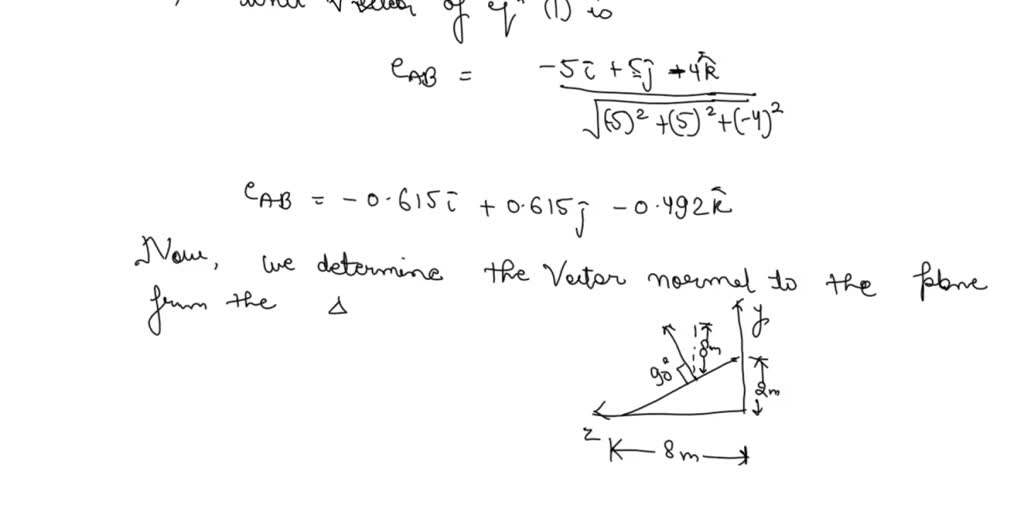 , unit vector of eqⁿ (1) is
e_AB = (-5i + 5j - 4k̂) / √((-5)² + (5)² + (-4)²)
e_AB = -0.615i + 0.615j - 0.492k̂
Now, we determine the Vector normal to the plane
from the Δ
y
8m
90°
2m
z
8m